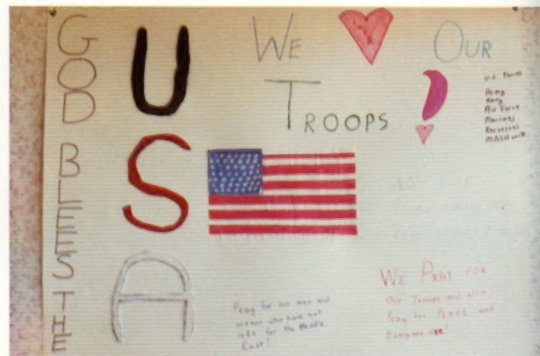 GOD BLESS THE
USA
WE ♥ OUR
TROOPS!
U.S. Forces
Army
Navy
Air Force
Marines
Reserves
MASH units
Pray for our men and
women who have not
left for the Middle
East!
WE PRAY FOR
Our Troops and also
Pray for PEACE and
Everyone use!